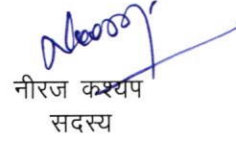 नीरज कश्यप
सदस्य